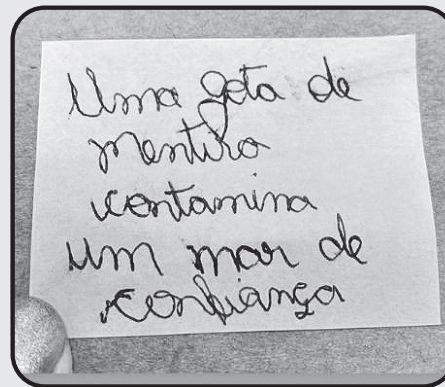 Uma gota de
mentira
contamina
um mar de
confiança